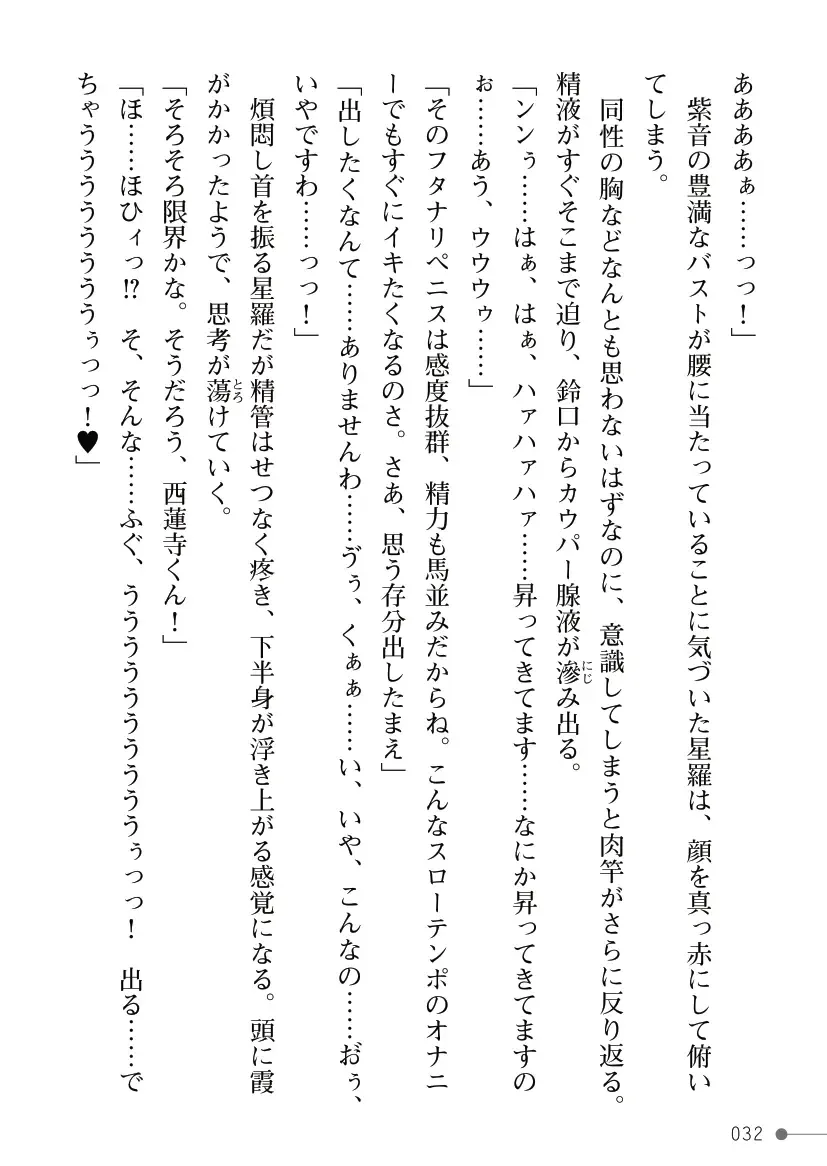 ああああぁ……っっ！」
　紫音の豊満なバストが腰に当たっていることに気づいた星羅は、顔を真っ赤にして俯い
てしまう。
　同性の胸などなんとも思わないはずなのに、意識してしまうと肉竿がさらに反り返る。
にじ
精液がすぐそこまで迫り、鈴口からカウパー腺液が滲み出る。
「ンンぅ……はぁ、はぁ、ハァハァハァ……昇ってきてます……なにか昇ってきてますの
ぉ……あう、ウウウゥ……」
「そのフタナリペニスは感度抜群、精力も馬並みだからね。こんなスローテンポのオナニ
ーでもすぐにイキたくなるのさ。さあ、思う存分出したまえ」
「出したくなんて……ありませんわ……ゔぅ、くぁぁ……い、いや、こんなの……お゙ぅ、
いやですわ……っっ！」
　煩悶し首を振る星羅だが精管はせつなく疼き、下半身が浮き上がる感覚になる。頭に霞
とろ
がかかったようで、思考が蕩けていく。
「そろそろ限界かな。そうだろう、西蓮寺くん！」
「ほ……ほひィっ!?　そ、そんな……ふぐ、うううううううううぅっっ！　出る……で
ちゃうううううううううぅっっ！♥」
032